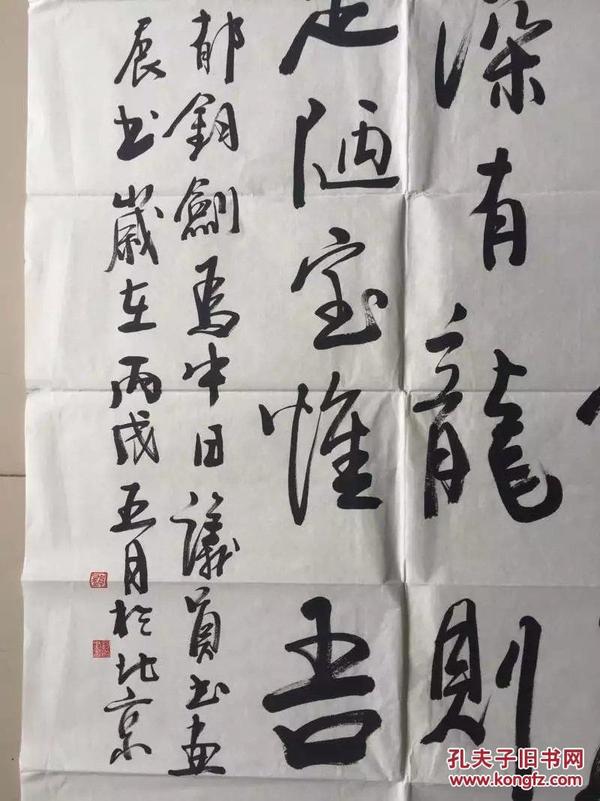 深有龍則
是陋室惟吾
郁鈞劍為中日議員書畫
展書歲在丙戌五月於北京
孔夫子旧书网
www.kongfz.com